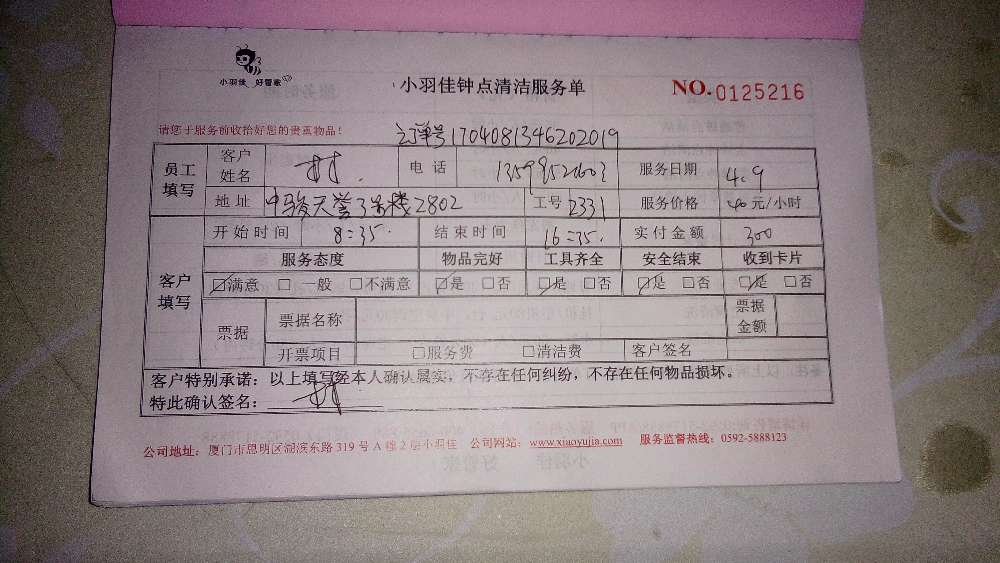 小羽佳 好管家
小羽佳钟点清洁服务单
NO.0125216
请您于服务前收拾好您的贵重物品!
订单号1704081346202019
员工填写 客户姓名 林 电话 服务日期 4.9
地址 中骏天誉3号楼2802 工号 2331 服务价格 40元/小时
客户填写 开始时间 8:35. 结束时间 16:35. 实付金额 300
服务态度 物品完好 工具齐全 安全结束 收到卡片
☑满意 □一般 □不满意 ☑是 □否 ☑是 □否 ☑是 □否 ☑是 □否
票据 票据名称 票据金额
开票项目 □服务费 □清洁费 客户签名
客户特别承诺:以上填写经本人确认属实,不存在任何纠纷,不存在任何物品损坏。
特此确认签名: 林
公司地址:厦门市思明区湖滨东路319号A幢2层小羽佳 公司网站:www.xiaoyujia.com 服务监督热线:0592-5888123